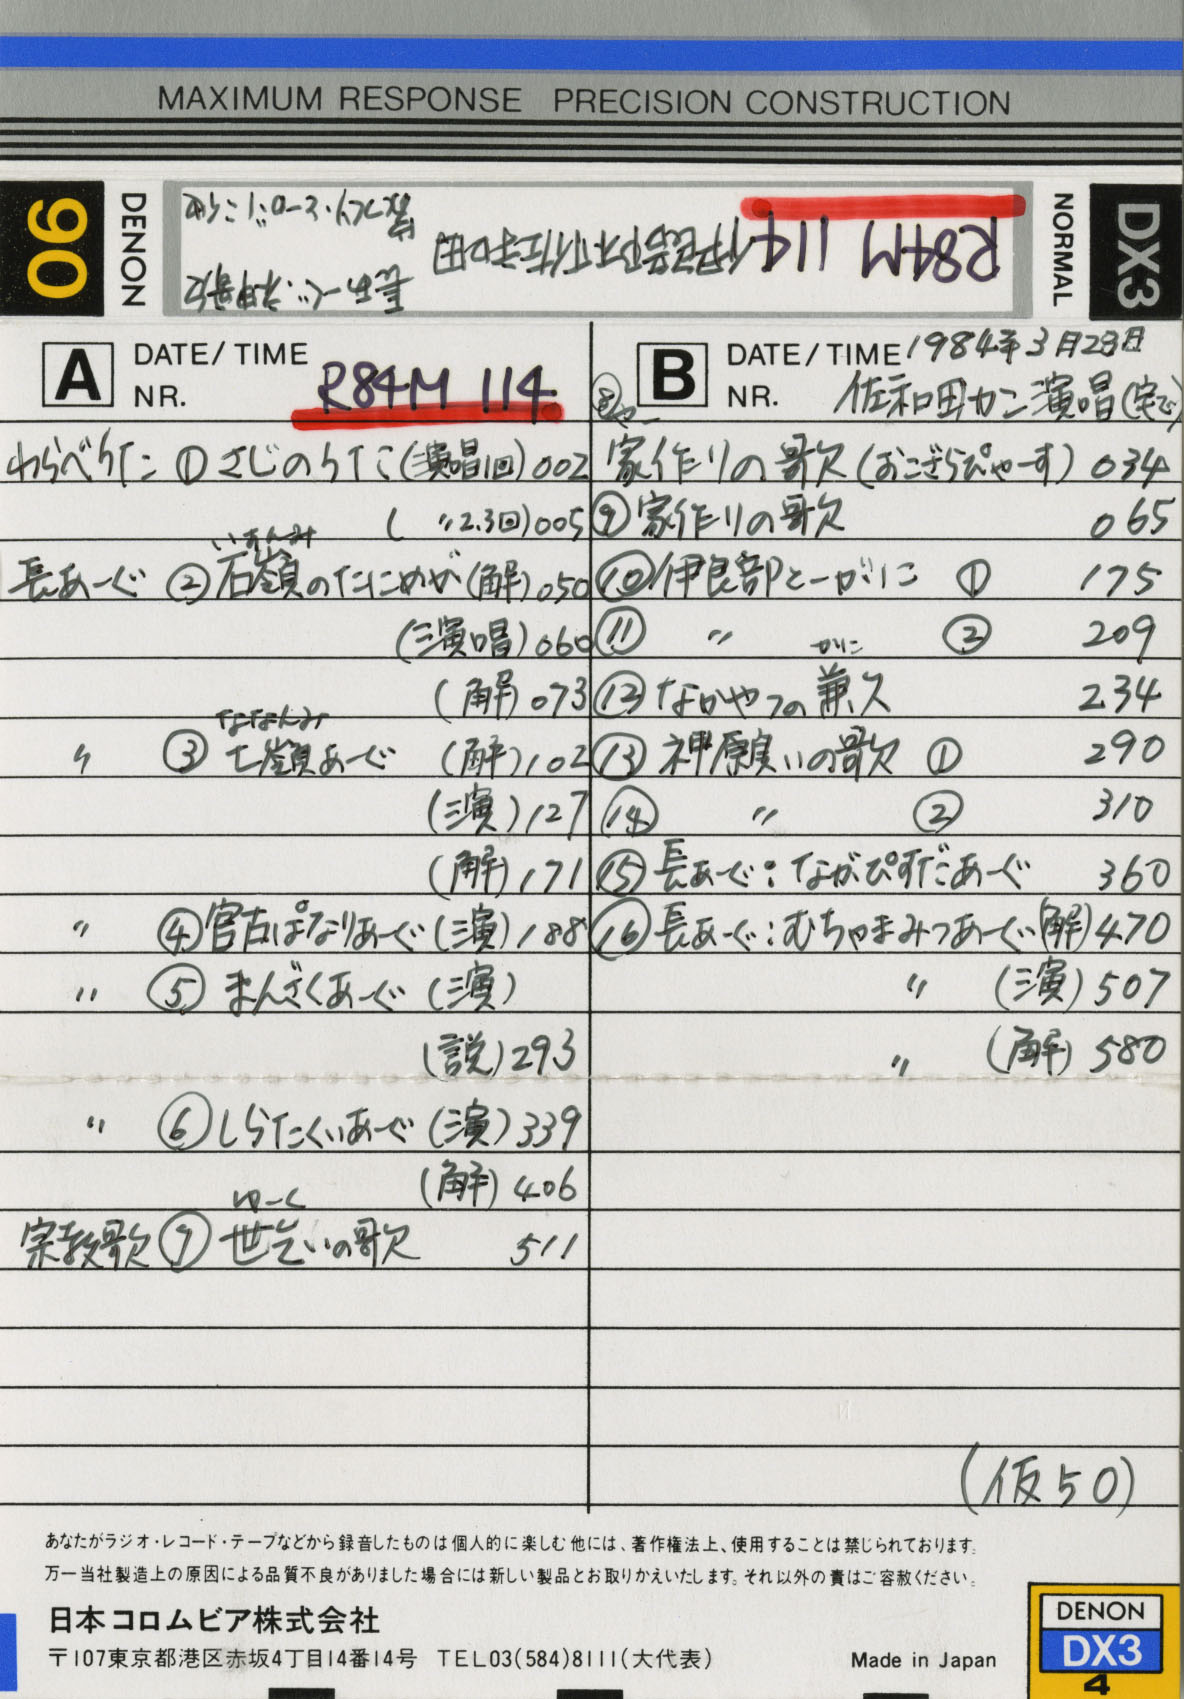 MAXIMUM RESPONSE PRECISION CONSTRUCTION
90
DENON
R84M 114
NORMAL
DX3
A
DATE/TIME
NR.
R84M 114
わらべうた ① さじのうた(演唱1回)002
( 〃2.3回)005
いすんみ
長あーぐ ② 石嶺のたにめが(解)050
(演唱)060
(解)073
ななんみ
〃 ③ 七嶺あーぐ (解)102
(演)127
(解)171
〃 ④ 宮古ぱなりあーぐ(演)188
〃 ⑤ まんざくあーぐ(演)
(説)293
〃 ⑥ しらたくいあーぐ(演)339
(解)406
ゆーく
宗教歌 ⑦ 世乞いの歌 511
B
DATE/TIME 1984年3月23日
NR. 佐和田カン演唱(宅で)
⑧
家作りの歌(おこざらぴゃーす) 034
⑨ 家作りの歌 065
⑩ 伊良部とーがに ① 175
⑪ 〃 ② 209
がに
⑫ なかやつの兼久 234
⑬ 神願いの歌 ① 290
⑭ 〃 ② 310
⑮ 長あーぐ:ながぴすだあーぐ 360
⑯ 長あーぐ:むちゃまみつあーぐ(解)470
〃 (演)507
〃 (解)580
(仮50)
あなたがラジオ・レコード・テープなどから録音したものは個人的に楽しむ他には、著作権法上、使用することは禁じられております。
万一当社製造上の原因による品質不良がありました場合には新しい製品とお取りかえいたします。それ以外の責はご容赦ください。
日本コロムビア株式会社
〒107東京都港区赤坂4丁目14番14号 TEL03(584)8111(大代表)
Made in Japan
DENON
DX3
4